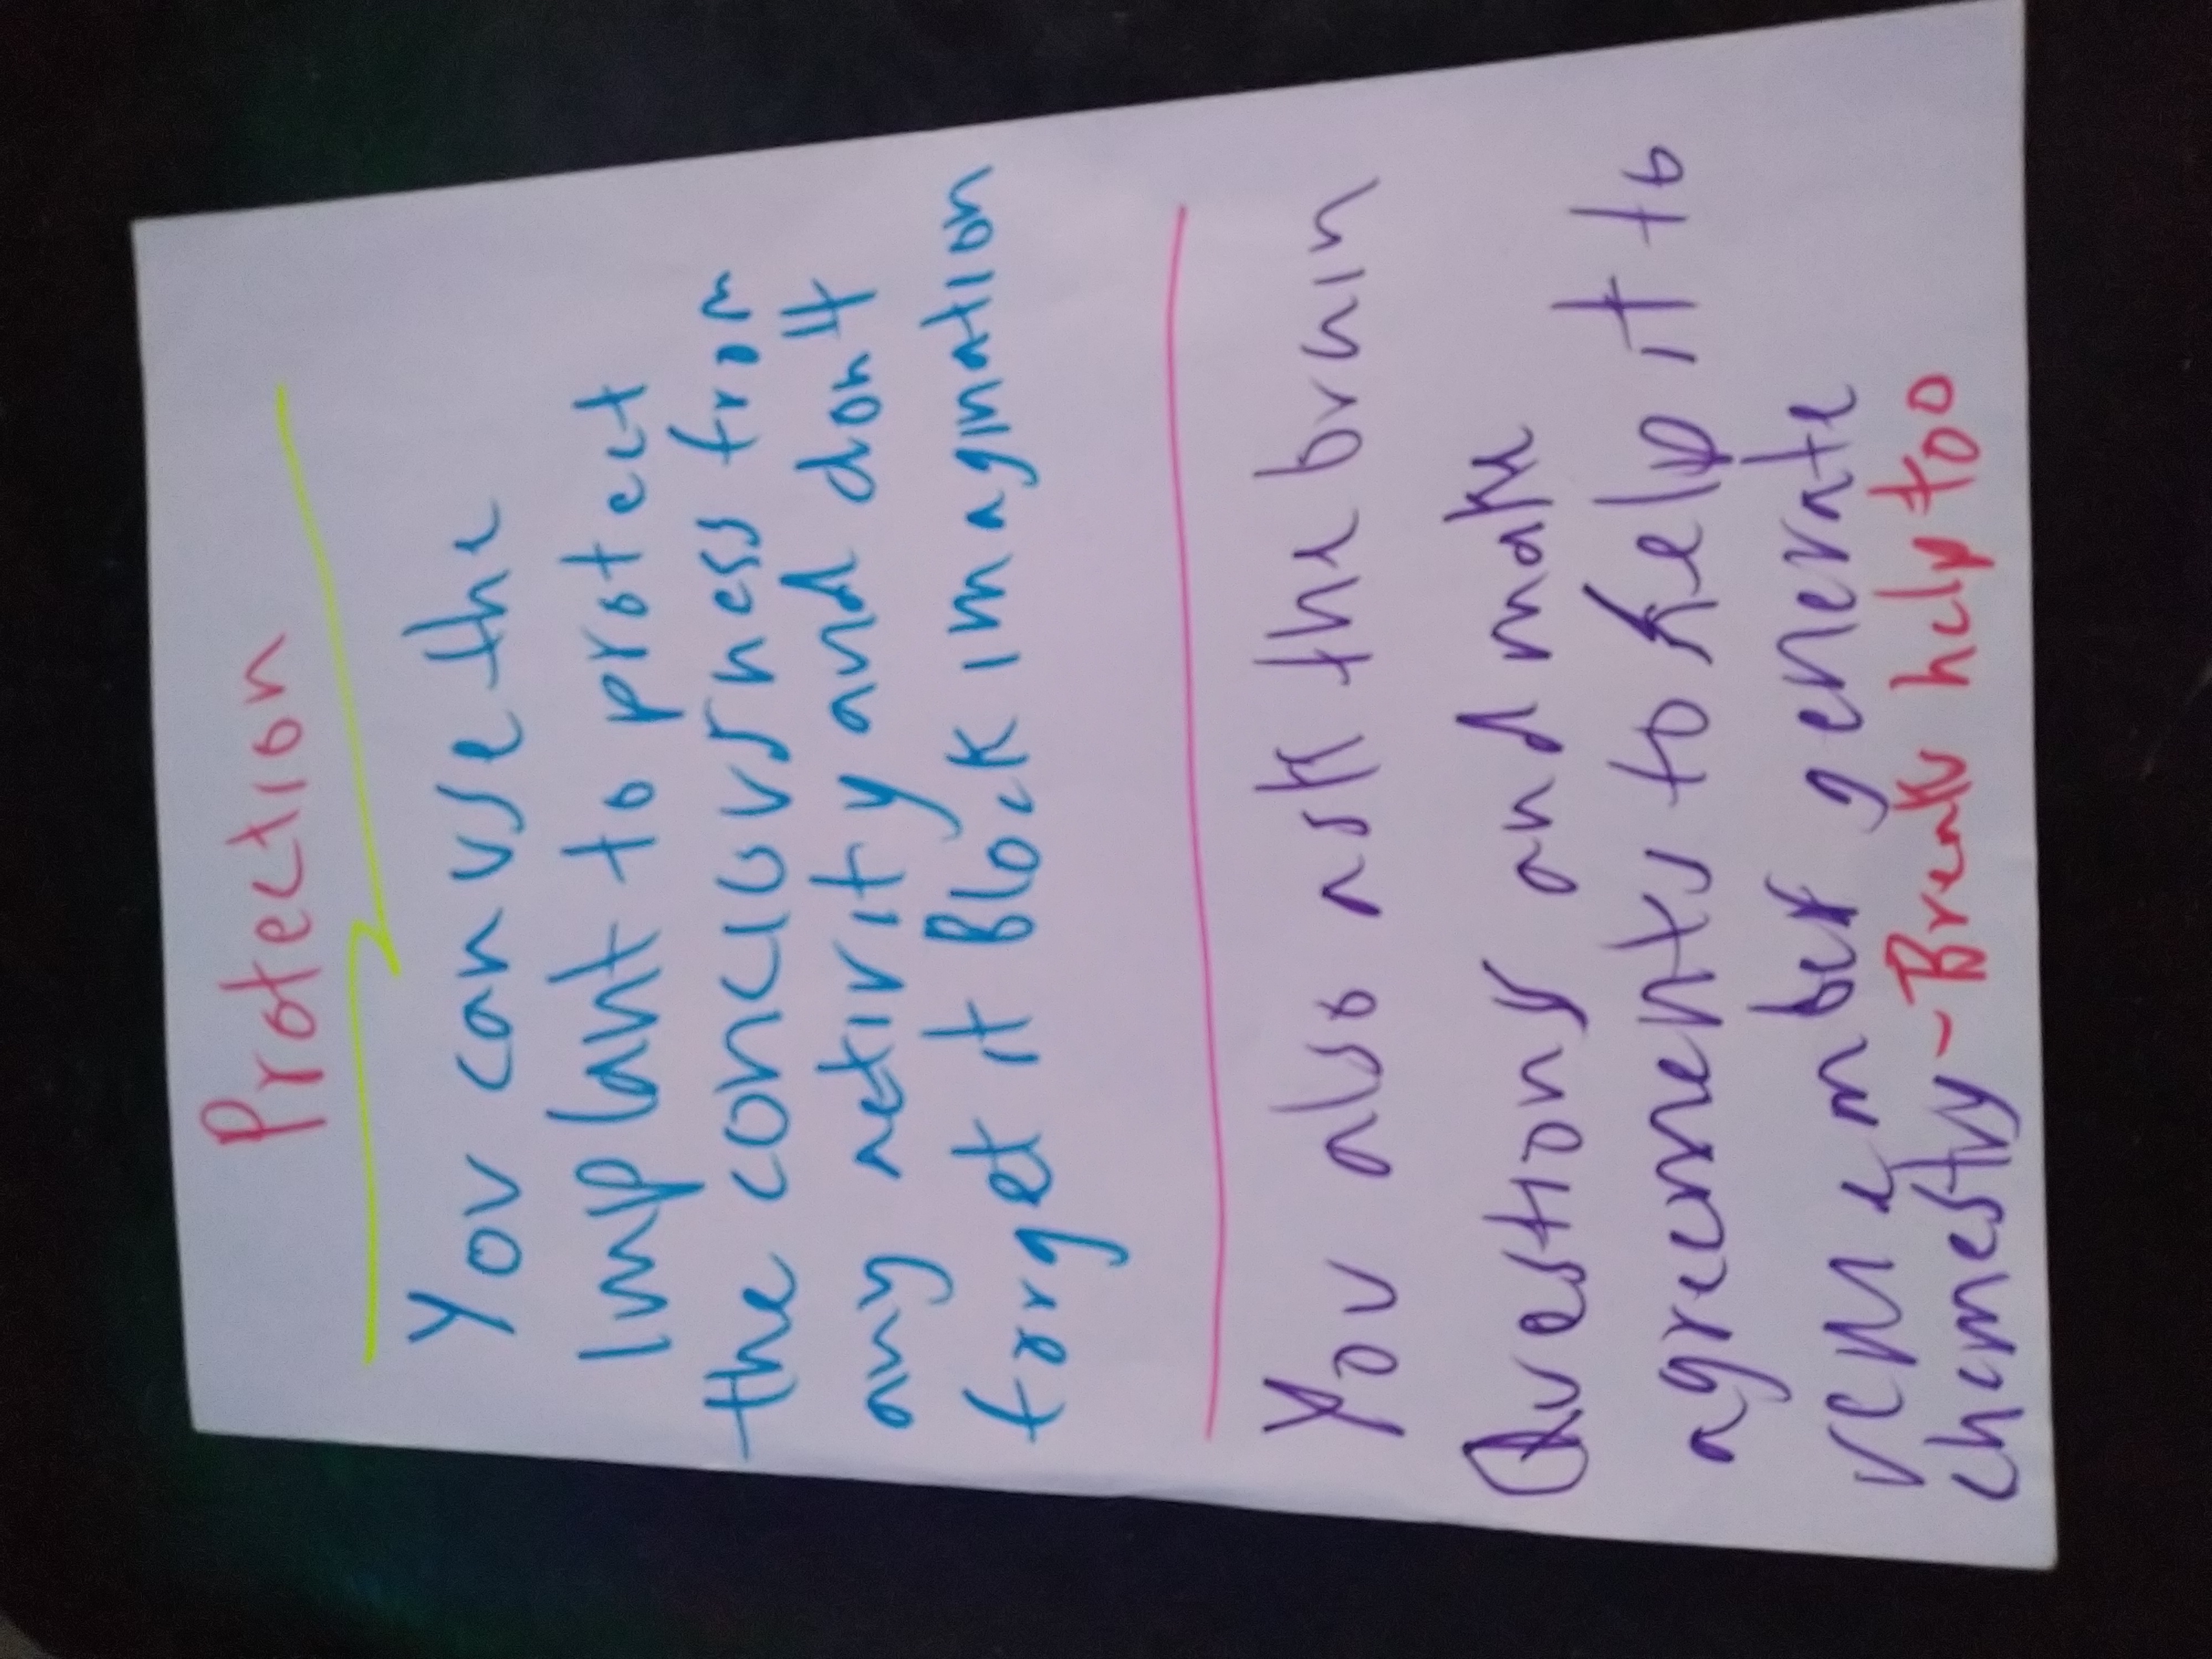 Protection
You can use the
Implant to protect
the conciousness from
any activity and don't
forget it Block Imagination
You also ask the brain
Questions and make
agreements to help it to
remember generate
chemestry - Breaks help too